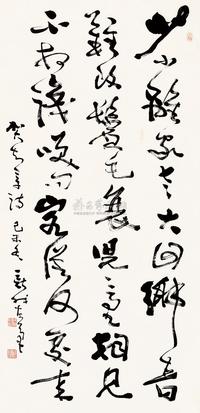 少小離家老大回鄉音
難改鬢毛衰兒童相見
不相識咲問客從何處來
賀知章詩 己未冬